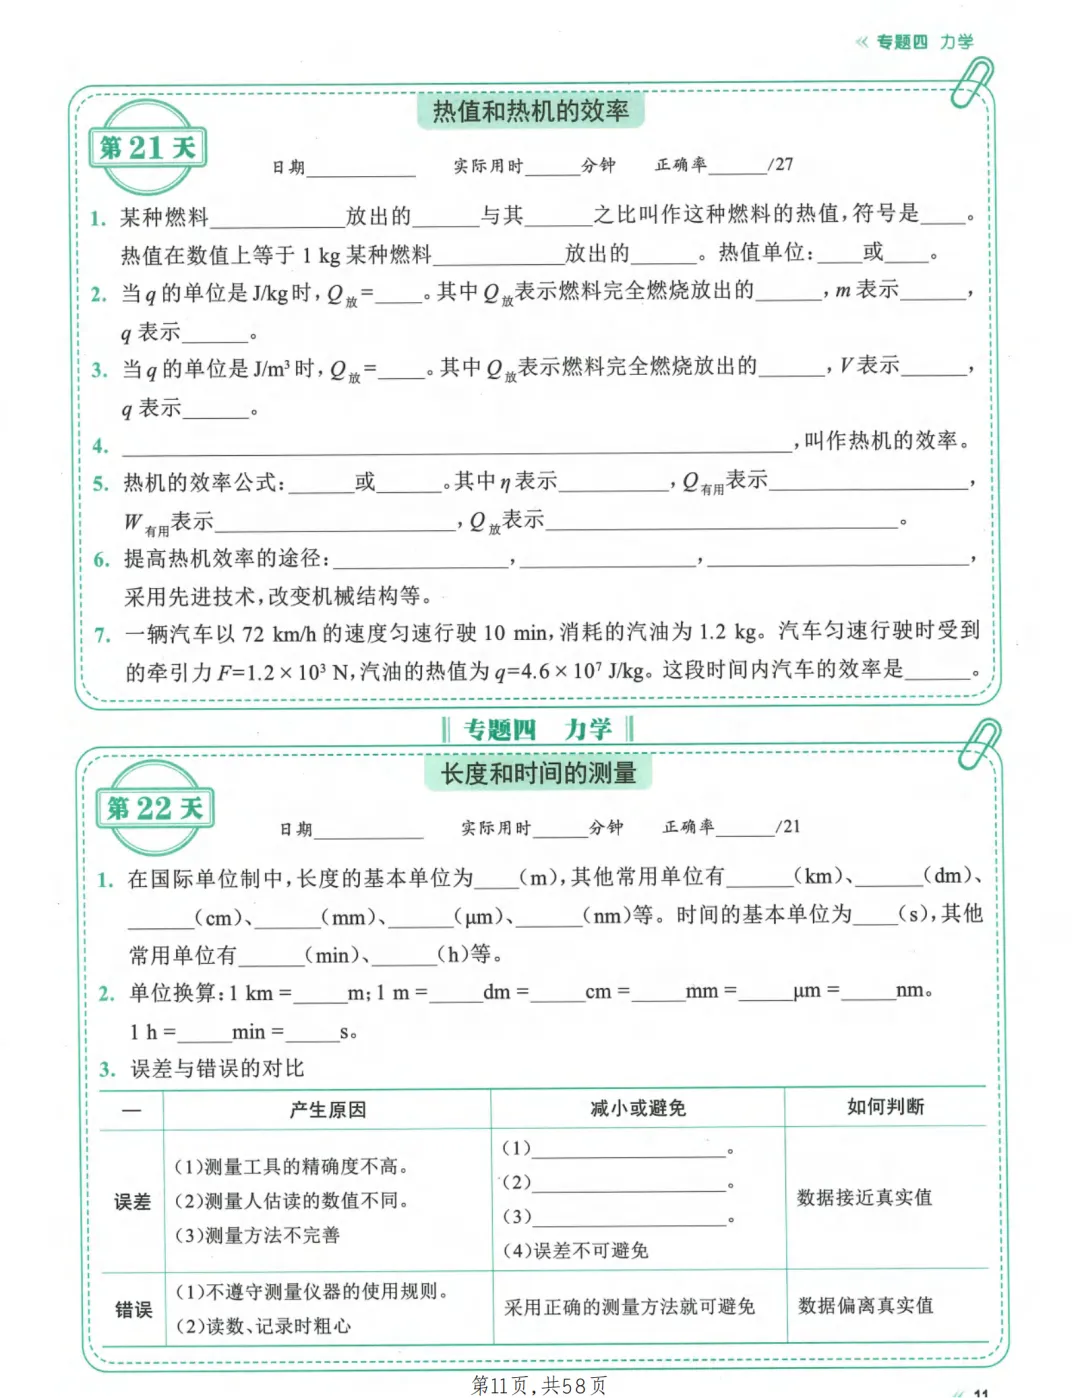 《 专题四 力学
热值和热机的效率
第21天
日期__________ 实际用时_____分钟 正确率_____/27
1. 某种燃料____________放出的______与其______之比叫作这种燃料的热值,符号是____。
热值在数值上等于 1 kg 某种燃料____________放出的______。热值单位:____或____。
2. 当 q 的单位是 J/kg 时, Q放=____。其中 Q放表示燃料完全燃烧放出的______, m 表示______,
q 表示______。
3. 当 q 的单位是 J/m³ 时, Q放=____。其中 Q放表示燃料完全燃烧放出的______, V 表示______,
q 表示______。
4. ____________________________________________________________,叫作热机的效率。
5. 热机的效率公式:______或______。其中 η 表示__________, Q有用表示__________________,
W有用表示______________________, Q放表示________________________________。
6. 提高热机效率的途径:________________,________________,________________________,
采用先进技术,改变机械结构等。
7. 一辆汽车以 72 km/h 的速度匀速行驶 10 min,消耗的汽油为 1.2 kg。汽车匀速行驶时受到
的牵引力 F=1.2×10³ N,汽油的热值为 q=4.6×10⁷ J/kg。这段时间内汽车的效率是______。
专题四 力学
长度和时间的测量
第22天
日期__________ 实际用时_____分钟 正确率_____/21
1. 在国际单位制中,长度的基本单位为____(m),其他常用单位有______(km)、______(dm)、
______(cm)、______(mm)、______(μm)、______(nm)等。时间的基本单位为____(s),其他
常用单位有______(min)、______(h)等。
2. 单位换算:1 km =_____m;1 m =_____dm =_____cm =_____mm =_____μm =_____nm。
1 h =_____min =_____s。
3. 误差与错误的对比
— 产生原因 减小或避免 如何判断
误差
(1)测量工具的精确度不高。
(2)测量人估读的数值不同。
(3)测量方法不完善
(1)__________________。
(2)__________________。
(3)__________________。
(4)误差不可避免
数据接近真实值
错误
(1)不遵守测量仪器的使用规则。
(2)读数、记录时粗心
采用正确的测量方法就可避免
数据偏离真实值
第11页,共58页
《 11